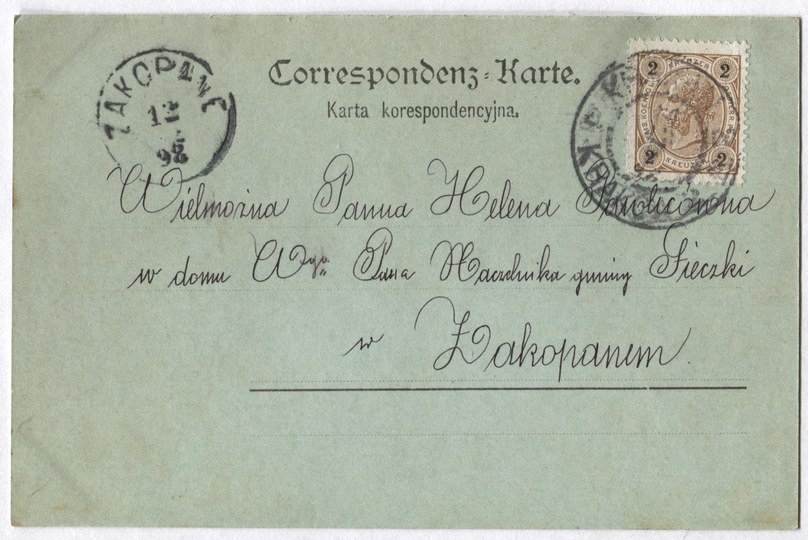 Correspondenz-Karte.
Karta korespondencyjna.
ZAKOPANE
12
2 2
2 KREUZER 2
Wielmożna Panna Helena
w domu Wgo Pana Naczelnika gminy Sieczki
w Zakopanem.